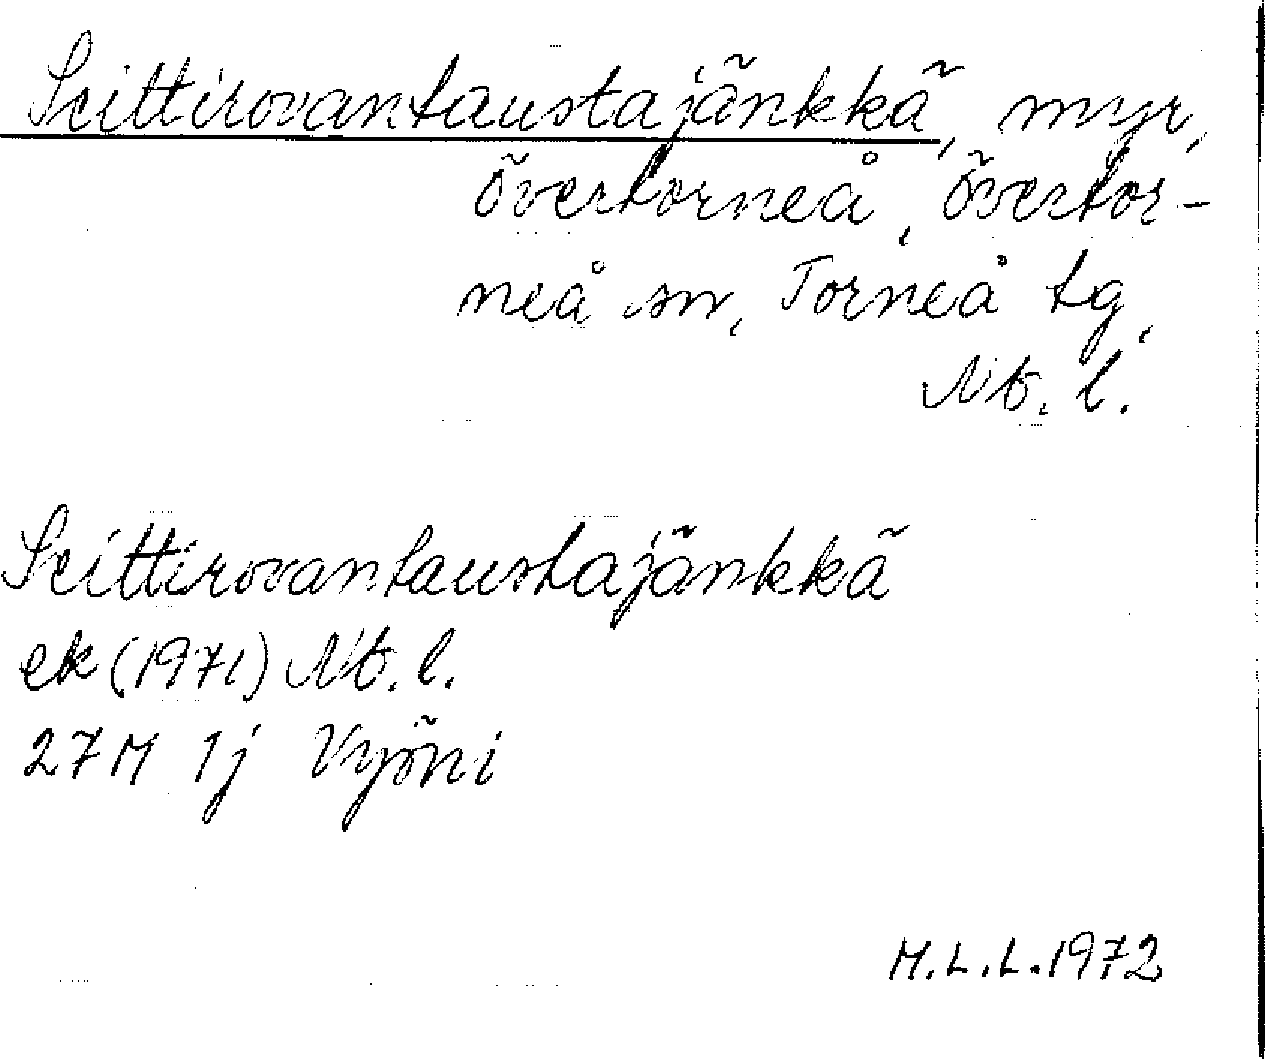 Seittirovantaustajänkkä, myr,
Övertorneå, Övertor-
neå sn, Torneå tg,
Nb. l.
Seittirovantaustajänkkä
ek (1971) Nb. l.
27M 1j Vyöni
M.L.L. 1972